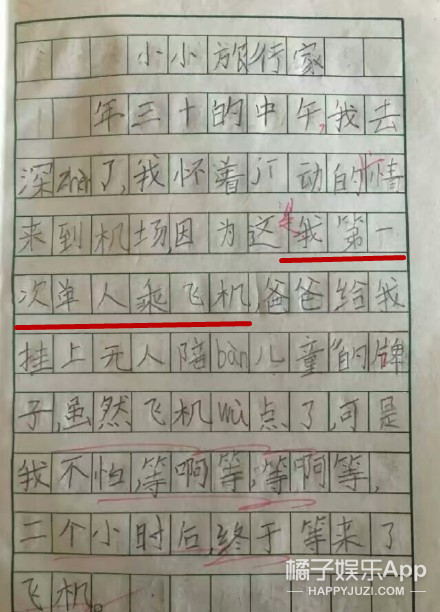 小小旅行家
年三十的中午,我去
深zhèn了,我怀着jī动的心情
来到机场,因为这是我第一
次单人乘飞机,爸爸给我
挂上无人陪bàn儿童的牌
子,虽然飞机wù点了,可是
我不怕,等啊等,等啊等,
二个小时后,终于等来了
飞机。
橘子娱乐App
HAPPYJUZI.COM